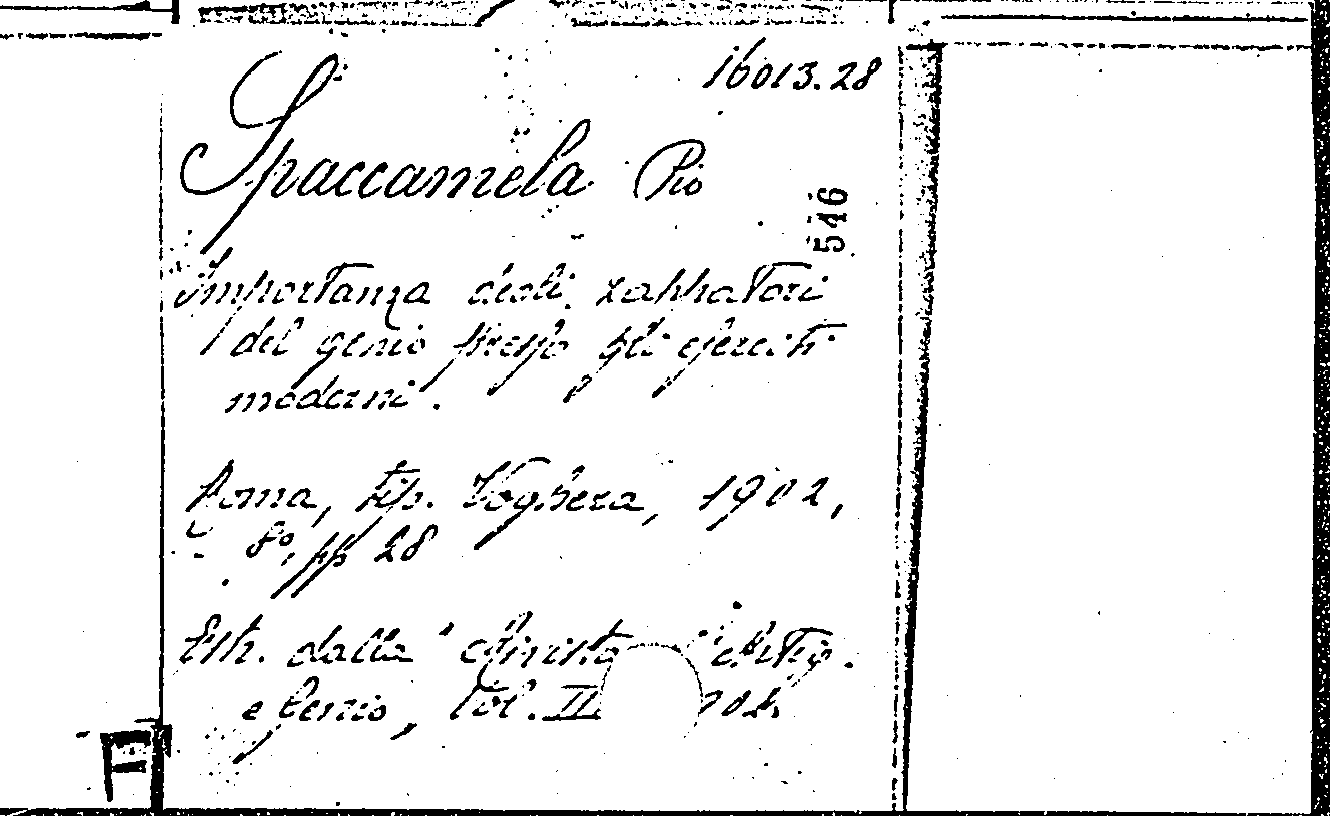 16013.28
Spaccamela Pio
546
Importanza degli zappatori
del genio presso gli eserciti
moderni.
Roma, tip. Voghera, 1902,
8°, pp 28
Estr. dalla "Rivista d'Artig.
e Genio, Vol. II 1902.